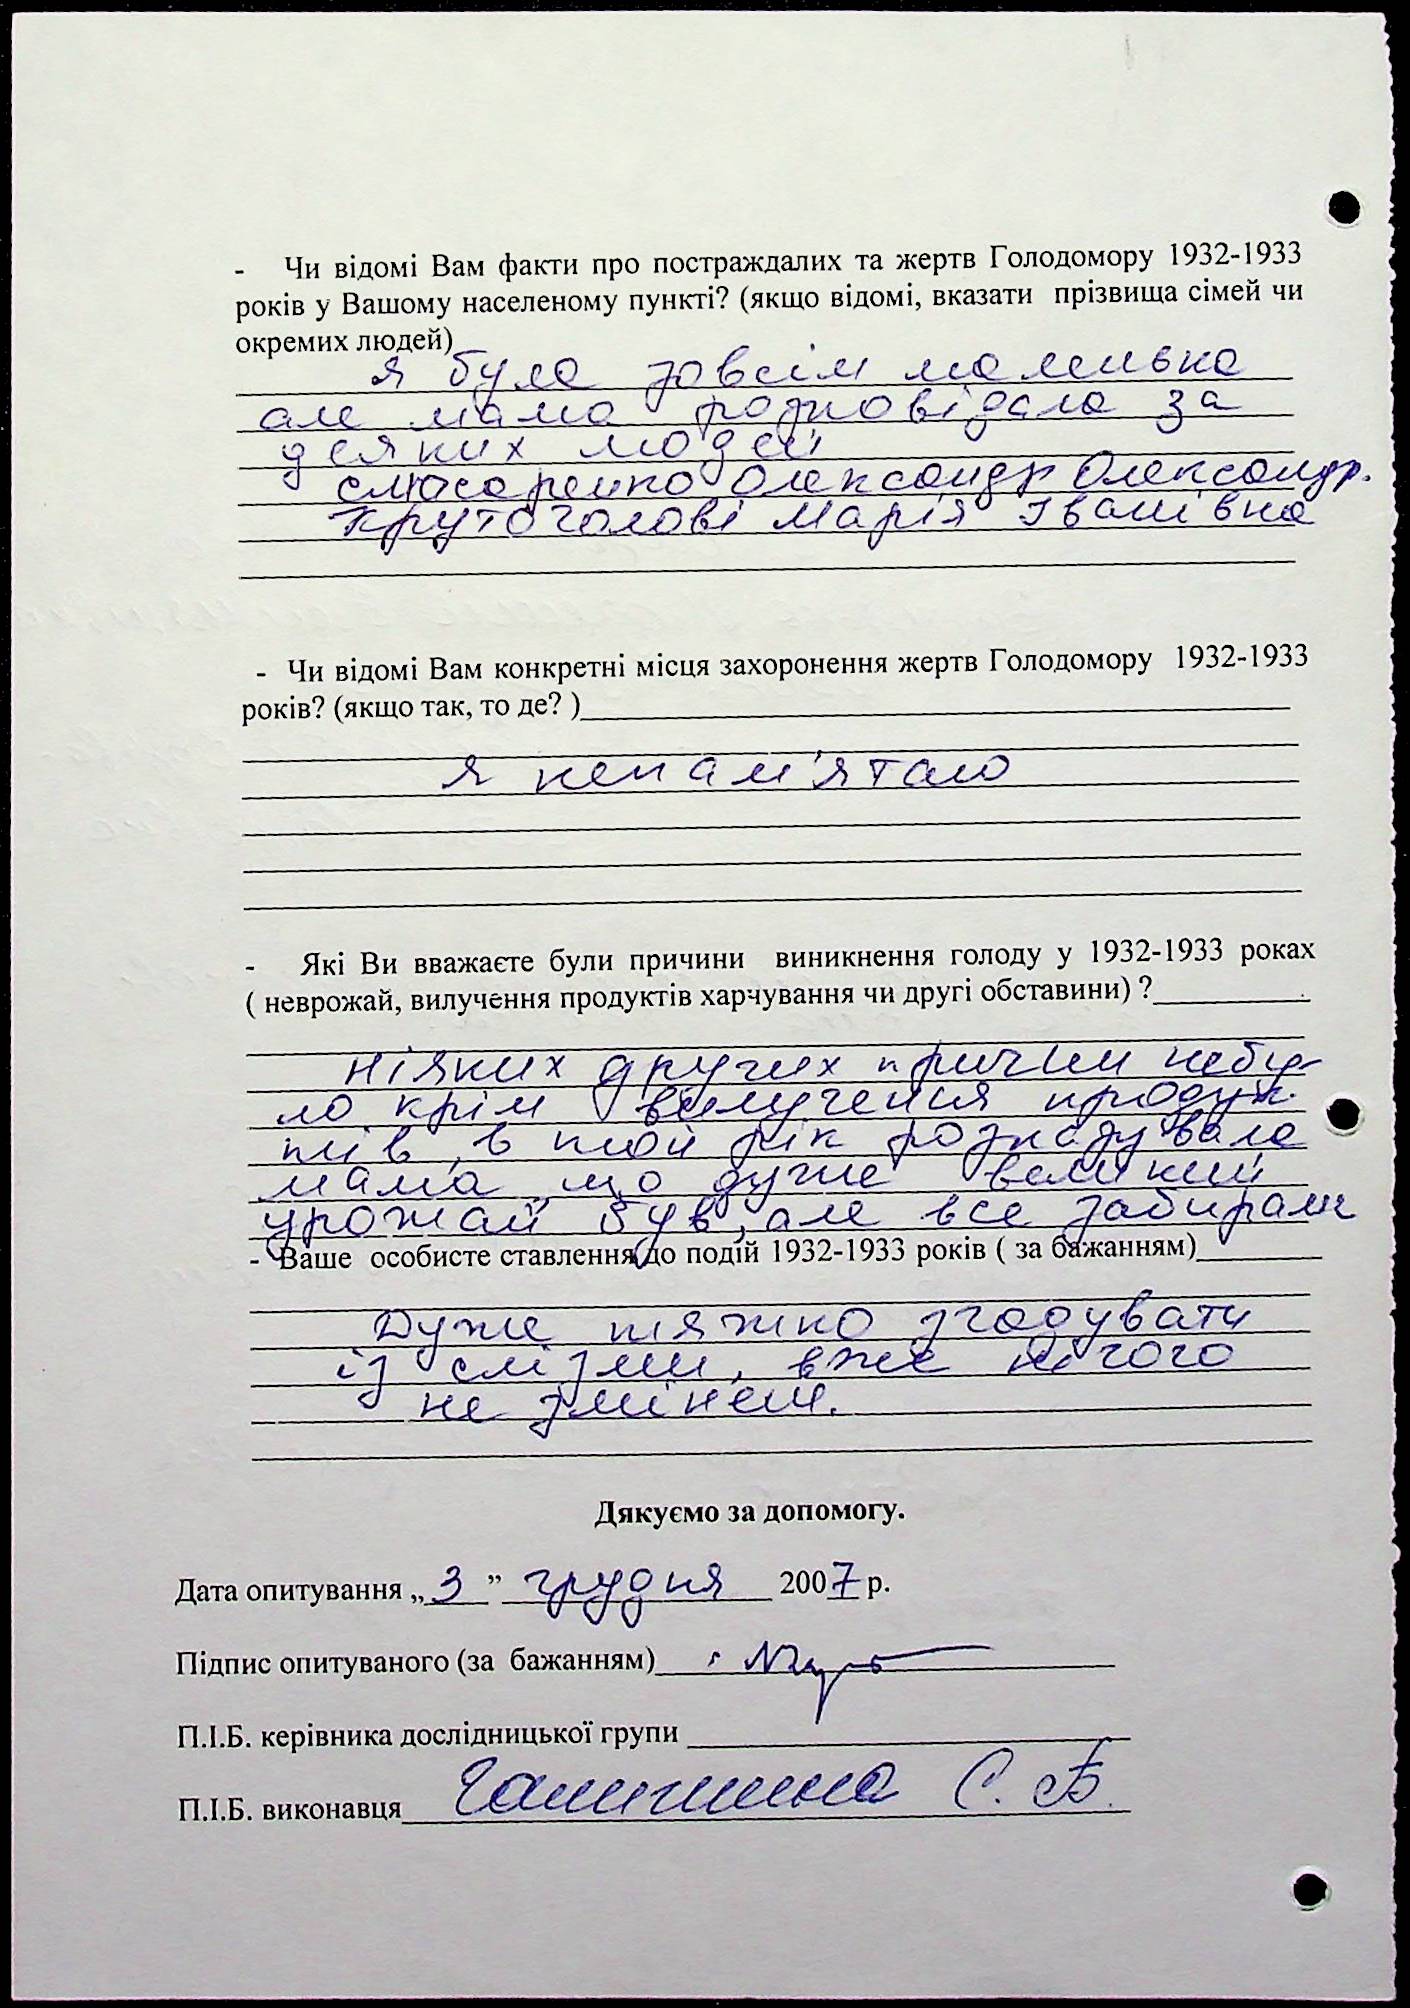 - Чи відомі Вам факти про постраждалих та жертв Голодомору 1932-1933
років у Вашому населеному пункті? (якщо відомі, вказати прізвища сімей чи
окремих людей)
я була зовсім маленька
але мама розповідала за
деяких людей
слюсаренко Олександр Олександр.
Крутоголові Марія Іванівна
- Чи відомі Вам конкретні місця захоронення жертв Голодомору 1932-1933
років? (якщо так, то де? )
я непам'ятаю
- Які Ви вважаєте були причини виникнення голоду у 1932-1933 роках
( неврожай, вилучення продуктів харчування чи другі обставини) ?
Ніяких других причин небу-
ло крім вилучення продук-
тів, в той рік розказувала
мама, що дуже великий
урожай був, але все забирали
- Ваше особисте ставлення до подій 1932-1933 років ( за бажанням)
Дуже тяжко згадувати
із слізми, вже нічого
не зміниш.
Дякуємо за допомогу.
Дата опитування „ 3 ” грудня 2007 р.
Підпис опитуваного (за бажанням)
П.І.Б. керівника дослідницької групи
П.І.Б. виконавця С. Б.